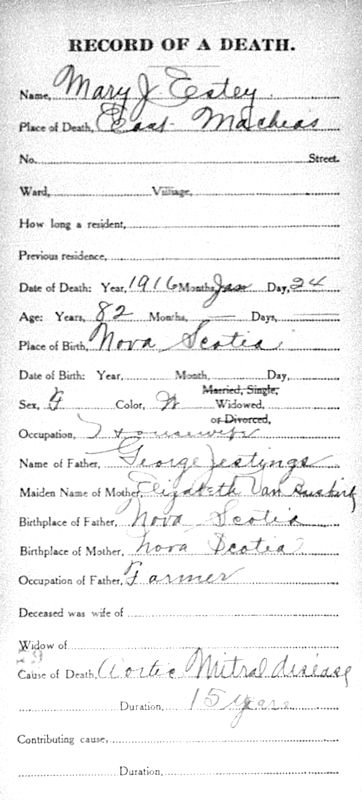 RECORD OF A DEATH.
Name, Mary J Estey
Place of Death, East Machias
No. Street.
Ward, Village,
How long a resident,
Previous residence,
Date of Death: Year, 1916 Months, Jan Day, 24
Age: Years, 82 Months, — Days, —
Place of Birth, Nova Scotia
Date of Birth: Year, Month, Day,
Married, Single,
Sex, F Color, W Widowed,
or Divorced,
Occupation, Housewife
Name of Father, George Jestings
Maiden Name of Mother, Elizabeth Van Buskirk
Birthplace of Father, Nova Scotia
Birthplace of Mother, Nova Scotia
Occupation of Father, Farmer
Deceased was wife of
Widow of
Cause of Death, Aortic Mitral disease
Duration, 15 years
Contributing cause,
Duration,